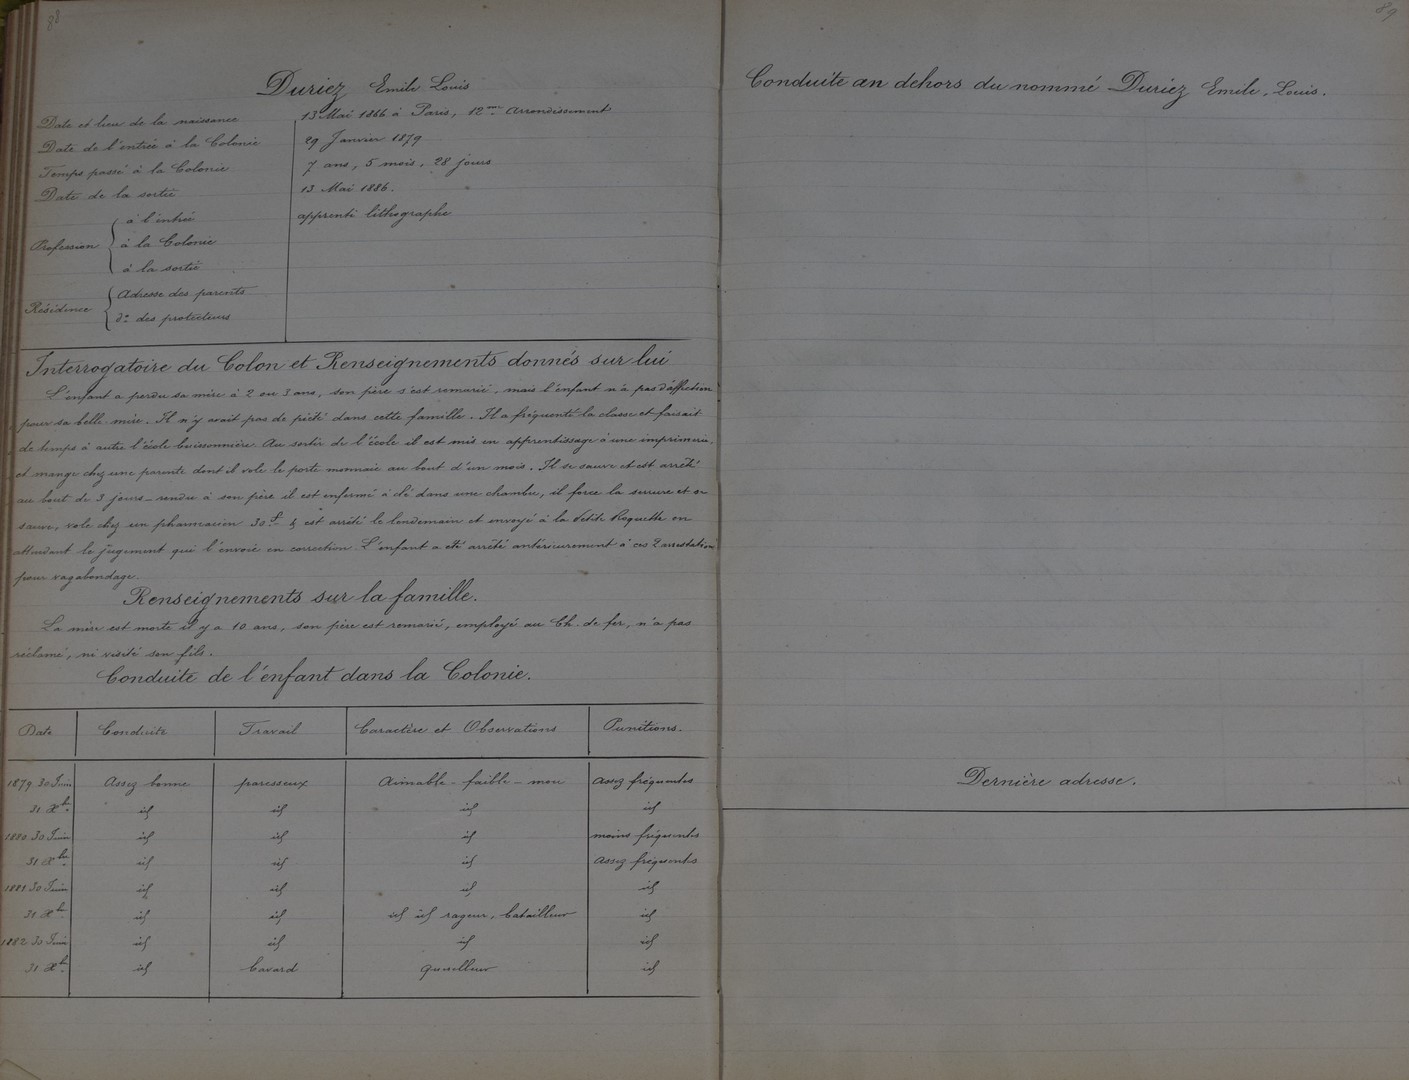 88
Duriez Emile Louis
Date et lieu de la naissance 13 Mai 1866 à Paris, 12me Arrondissement
Date de l'entrée à la Colonie 29 Janvier 1879
Temps passé à la Colonie 7 ans, 5 mois, 28 jours
Date de la sortie 13 Mai 1886.
Profession { à l'entrée apprenti lithographe
à la Colonie
à la sortie
Résidence { Adresse des parents
do des protecteurs
Interrogatoire du Colon et Renseignements donnés sur lui
L'enfant a perdu sa mère à 2 ou 3 ans, son père s'est remarié, mais l'enfant n'a pas d'affection
pour sa belle-mère. Il n'y avait pas de piété dans cette famille. Il a fréquenté la classe et faisait
de temps à autre l'école buissonnière. Au sortir de l'école il est mis en apprentissage à une imprimerie,
et mange chez une parente dont il vole le porte monnaie au bout d'un mois. Il se sauve et est arrêté
au bout de 3 jours - rendu à son père il est enfermé à clé dans une chambre, il force la serrure et se
sauve, vole chez un pharmacien 30f & est arrêté le lendemain et envoyé à la Petite Roquette en
attendant le jugement qui l'envoie en correction. L'enfant a été arrêté antérieurement à ces 2 arrestations
pour vagabondage.
Renseignements sur la famille.
La mère est morte il y a 10 ans, son père est remarié, employé au Ch. de fer, n'a pas
réclamé, ni visité son fils.
Conduite de l'enfant dans la Colonie.
Date Conduite Travail Caractère et Observations Punitions.
1879 30 Juin Assez bonne paresseux Aimable - faible - mou Assez fréquentes
31 Xbre id id id id
1880 30 Juin id id id moins fréquentes
31 Xbre id id id Assez fréquentes
1881 30 Juin id id id id
31 Xbre id id id id rageur, batailleur id
1882 30 Juin id id id id
31 Xbre id bavard querelleur id
89
Conduite au dehors du nommé Duriez Emile, Louis.
Dernière adresse.